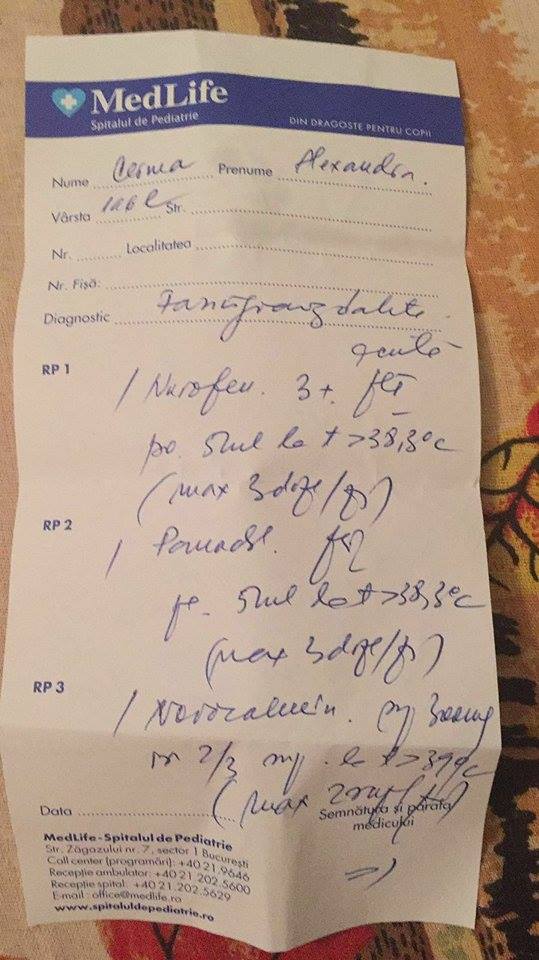 MedLife
Spitalul de Pediatrie
DIN DRAGOSTE PENTRU COPII
Nume Prenume Alexandra.
Vârsta Str.
Nr. Localitatea
Nr. Fișă:
Diagnostic
acută
RP 1
/ Nurofen. 3+. fl I
po. 5ml la t >38,3°C
(max 3 doze/zi)
RP 2
/ Panadol.
5ml la t >38,3°C
(max 3 doze/zi)
RP 3
/ Novocalmin. 300mg
2/3 la t >39°C
(max
Data Semnătura și parafa
medicului
=)
MedLife - Spitalul de Pediatrie
Str. Zăgazului nr. 7, sector 1 București
Call center (programări): +40 21.9646
Recepție ambulator: +40 21.202.5600
Recepție spital: +40 21.202.5629
E-mail: office@medlife.ro
www.spitaluldepediatrie.ro